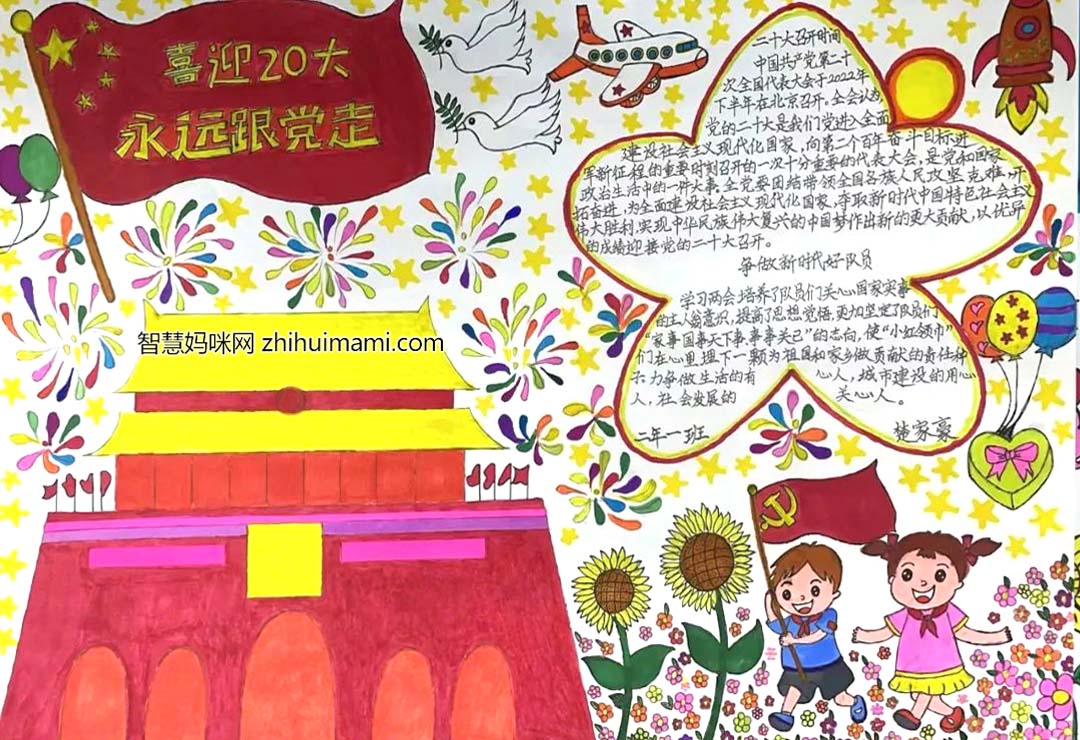 喜迎20大
永远跟党走
智慧妈咪网 zhihuimami.com
二十大召开时间
中国共产党第二十
次全国代表大会于2022年
下半年在北京召开。全会认为,
党的二十大是我们党进入全面
建设社会主义现代化国家、向第二个百年奋斗目标进
军新征程的重要时刻召开的一次十分重要的代表大会,是党和国家
政治生活中的一件大事。全党要团结带领全国各族人民攻坚克难,开
拓奋进,为全面建设社会主义现代化国家、夺取新时代中国特色社会主义
伟大胜利、实现中华民族伟大复兴的中国梦作出新的更大贡献,以优异
的成绩迎接党的二十大召开。
争做新时代好队员
学习两会培养了队员们关心国家实事
的主人翁意识,提高了思想觉悟,更加坚定了队员们
“家事国事天下事事事关己”的志向,使“小红领巾”
们在心里埋下一颗为祖国和家乡做贡献的责任种
力争做生活的有 心人,城市建设的用心
人,社会发展的 关心人。
二年一班 楚家豪